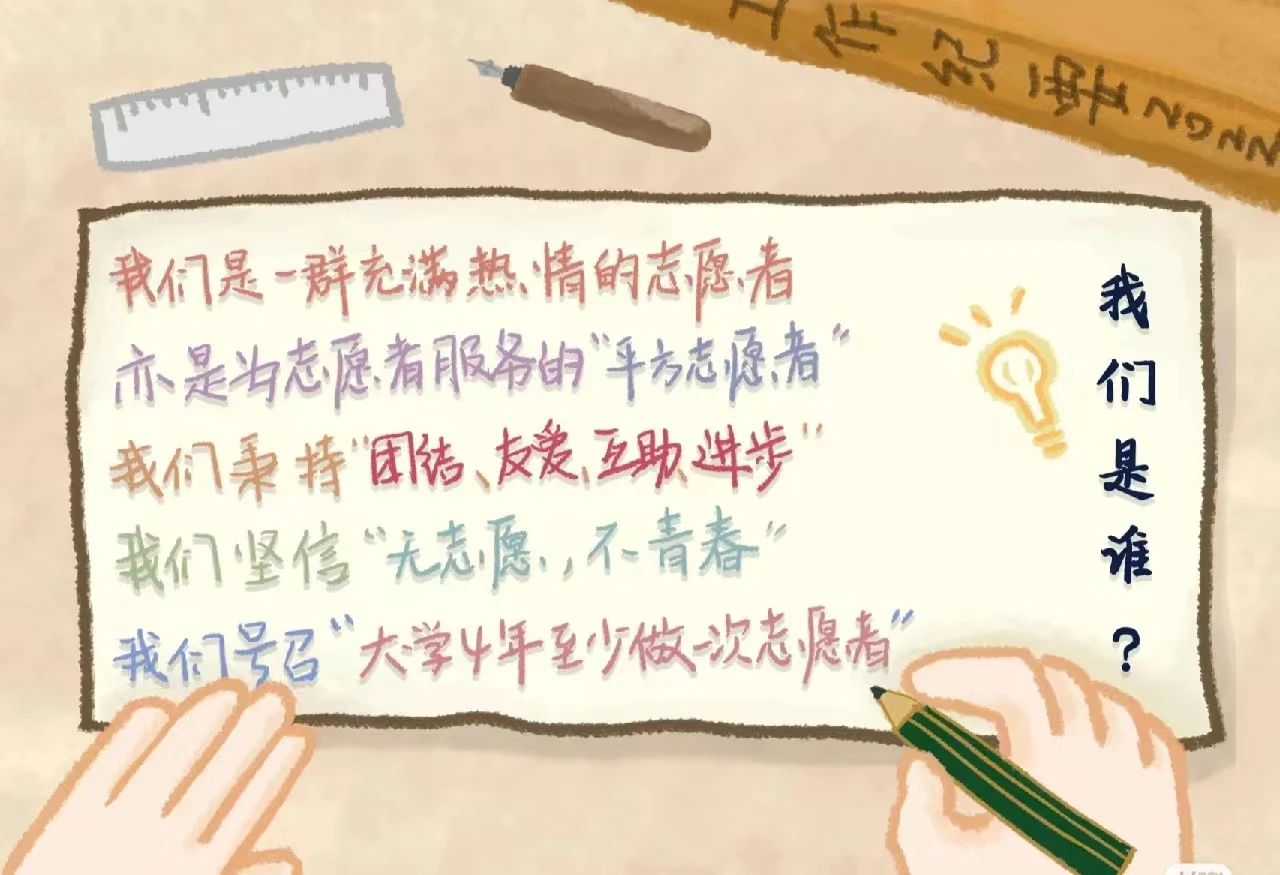 工作纪要2022
我们是谁？
我们是一群充满热情的志愿者
亦是为志愿者服务的“平方志愿者”
我们秉持“团结、友爱、互助、进步”
我们坚信“无志愿，不青春”
我们号召“大学4年至少做一次志愿者”